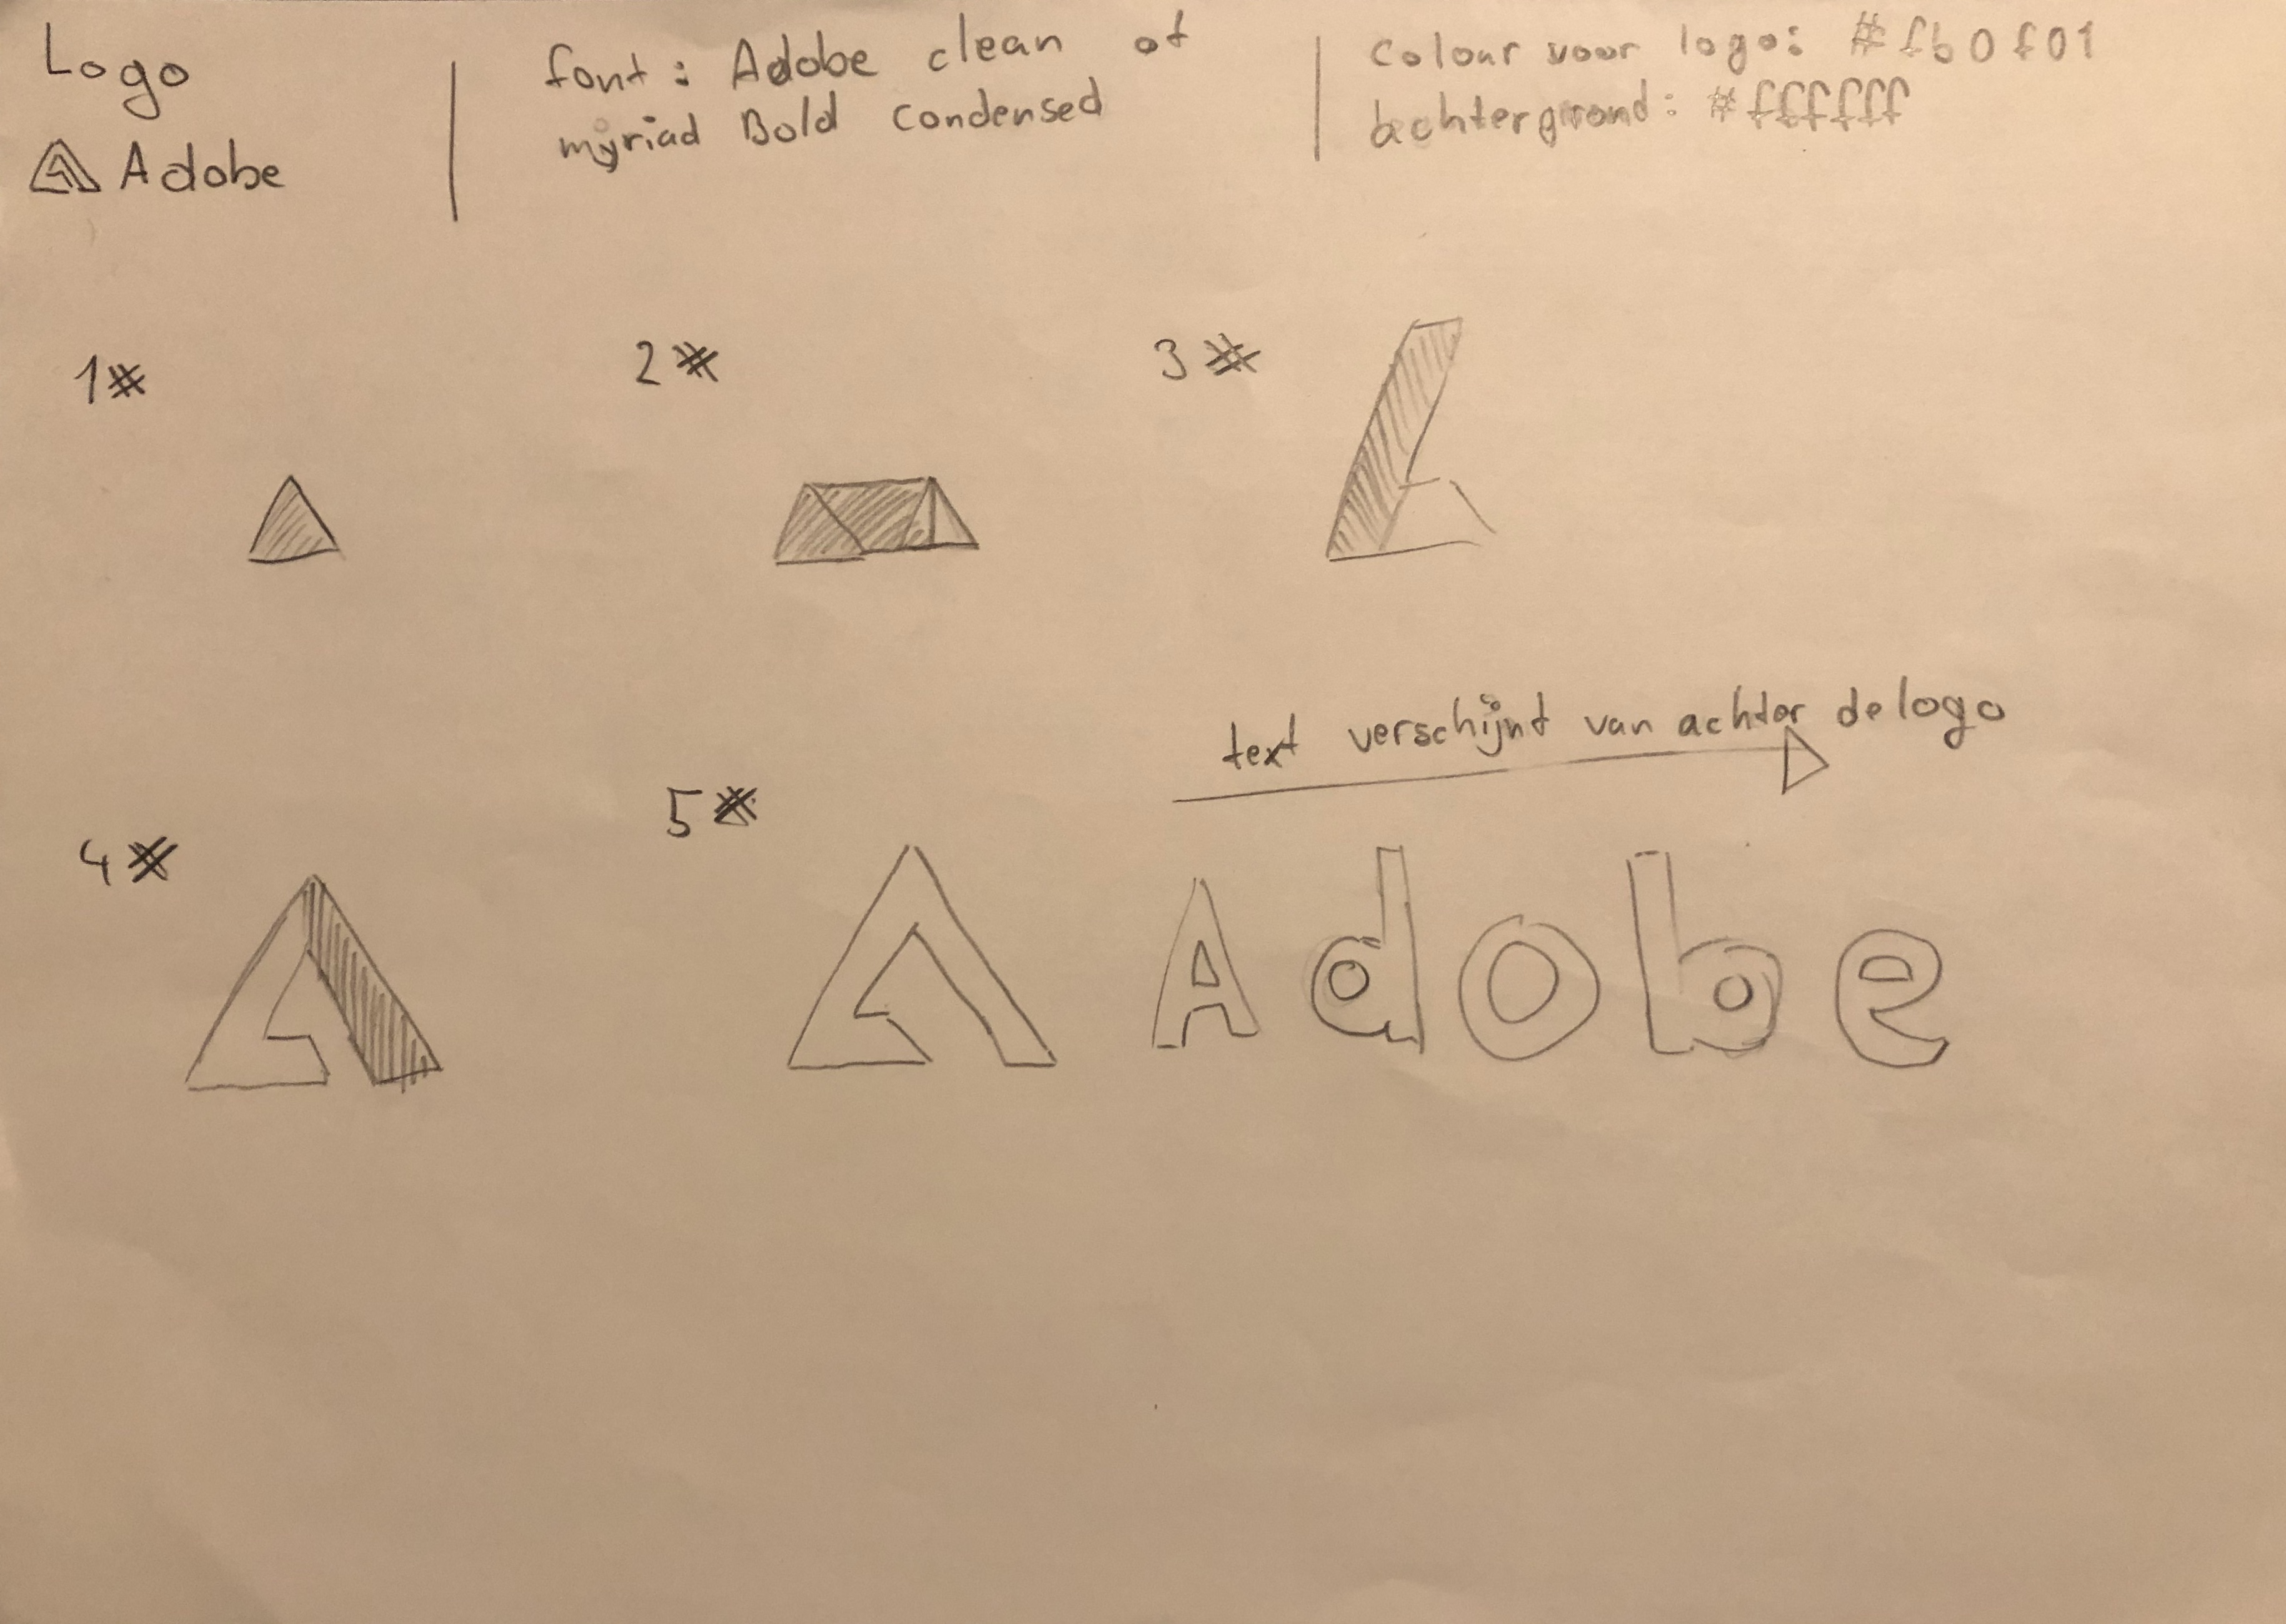 Logo
Adobe
font: Adobe clean of
myriad Bold Condensed
Colour voor logo: #fb0f01
achtergrond: #ffffff
1#
2#
3#
text verschijnt van achter de logo
4#
5#
Adobe